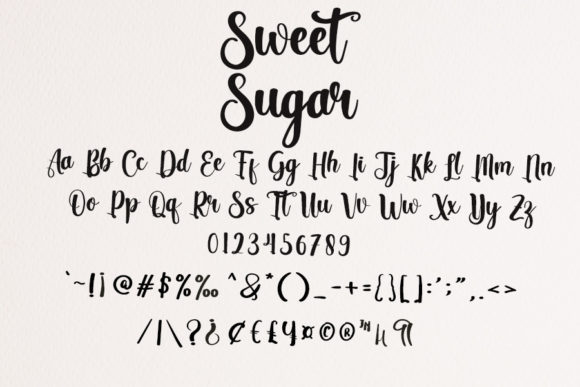 Sweet
Sugar
Aa Bb Cc Dd Ee Ff Gg Hh Ii Jj Kk Ll Mm Nn
Oo Pp Qq Rr Ss Tt Uu Vv Ww Xx Yy Zz
0123456789
`~!¡@#$%‰^&*()_-+={}[]:';",.<>
/|\?¿¢€£¤©®™¶